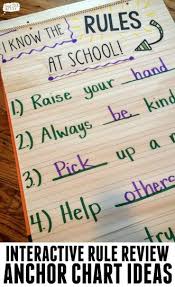 I KNOW THE RULES
AT SCHOOL!
1.) Raise your hand
2.) Always be kind
3.) Pick up a
4.) Help others
INTERACTIVE RULE REVIEW
ANCHOR CHART IDEAS